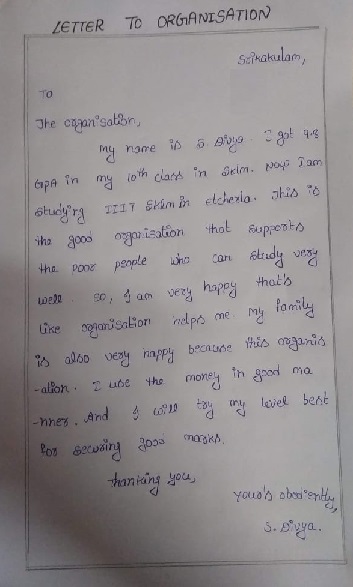 LETTER TO ORGANISATION
Srikakulam,
To
The organisation,
My name is S. Divya. I got 9.8
GPA in my 10th class in Sklm. Now I am
studying IIIT Sklm in etcherla. This is
the good organisation that supports
the poor people who can study very
well. so, I am very happy that's
like organisation helps me. my family
is also very happy because this organis
-ation. I use the money in good ma
-nner. And I will try my level best
for securing good marks.
thanking you,
your's obediently,
S. Divya.